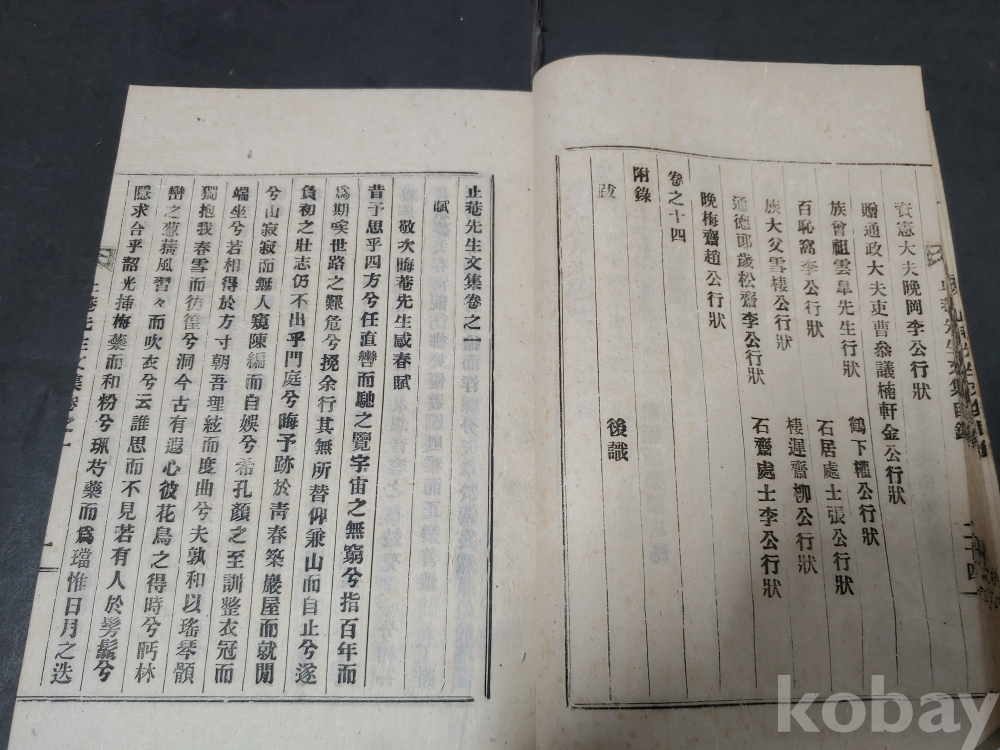 資憲大夫晩岡李公行狀
贈通政大夫吏曹叅議楠軒金公行狀
族曾祖雲皐先生行狀 鶴下權公行狀
百恥窩李公行狀 石居處士張公行狀
族大父雪棲公行狀 棲遲齋柳公行狀
通德郎歲松齋李公行狀 石齋處士李公行狀
晩梅齋趙公行狀
卷之十四
附錄
跋 後識
止菴先生文集卷之一
賦
敬次晦菴先生感春賦
昔予思乎四方兮任直轡而馳之覽宇宙之無窮兮指百年而
爲期唉世路之艱危兮挽余行其無所替仰兼山而自止兮遂
負初之壯志仍不出乎門庭兮晦予跡於靑春築巖屋而就閒
兮山寂寂而無人窺陳編而自娛兮希孔顏之至訓整衣冠而
端坐兮若相得於方寸朝吾理絃而度曲兮夫孰和以瑤琴顝
獨抱我春雪而彷徨兮洞今古有遐心彼花鳥之得時兮
巒之葱蒨風習々而吹衣兮云誰思而不見若有人於髣髴兮
隱求合乎韶光揷梅藥而和粉兮珮芍藥而爲璫惟日月之迭
止菴先生文集卷之一
一
kobay